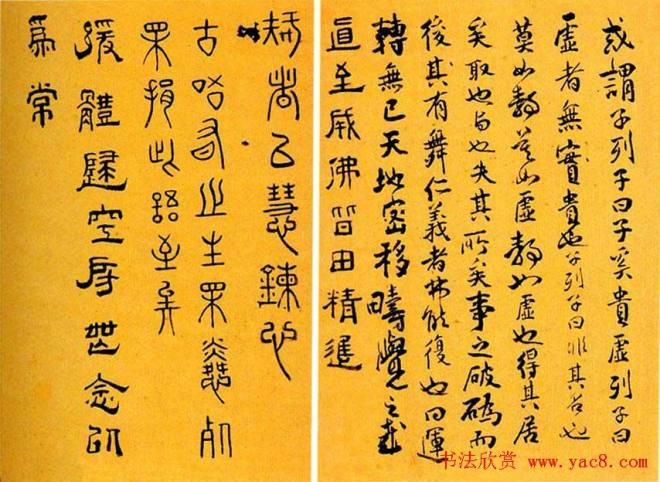 或謂子列子曰子奚貴虛列子曰
虛者無實貴也子列子曰非其名也
莫如靜莫如虛靜也虛也得其居
矣取也與也失其所矣事之破而
後其有舞仁義者弗能復也曰運
轉無已天地密移疇覺之哉
直至成佛皆由精進
者以慧鍊心
古
損此語至矣
緩體歸空世念
為常
书法欣赏 www.yac8.com